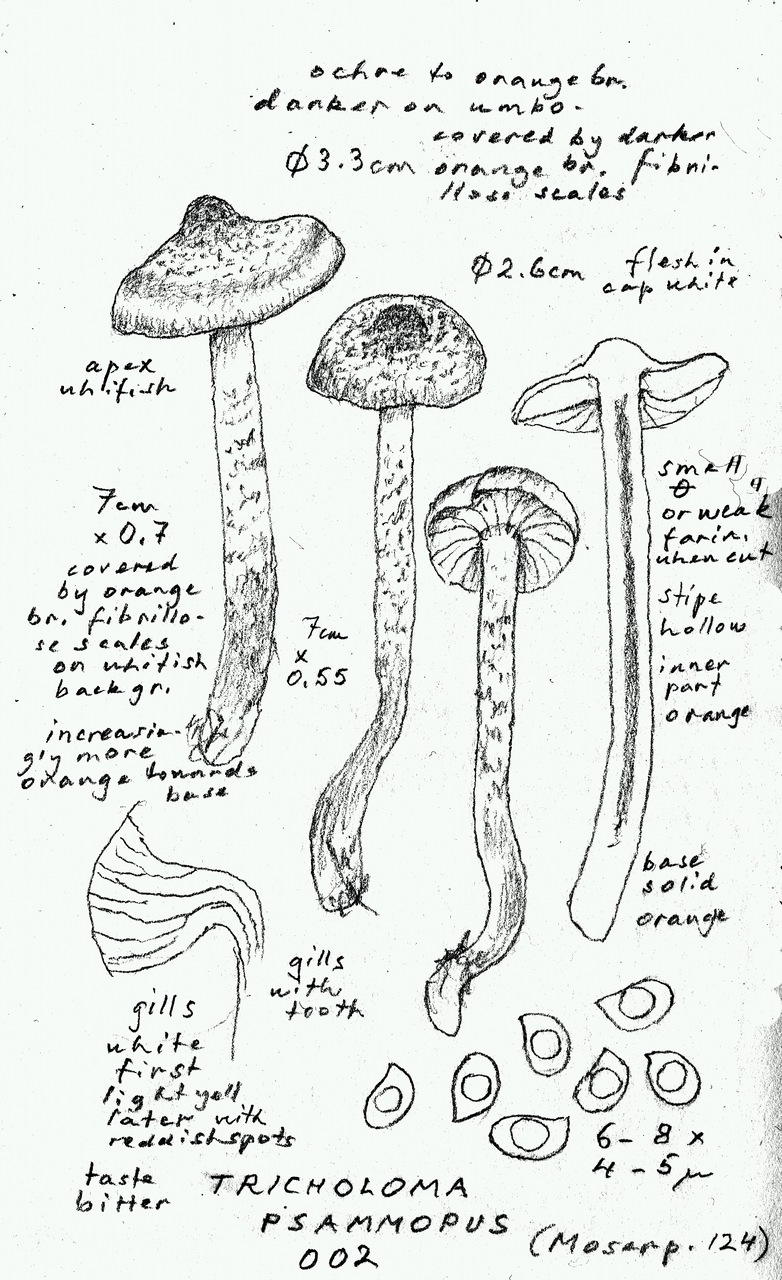 ochre to orange br.
darker on umbo.
covered by darker
Ø3.3cm orange br. fibri-
llose scales
Ø2.6cm flesh in
cap white
apex
whitish
7cm
x 0.7
covered
by orange
br. fibrillo-
se scales
on whitish
backgr.
increasin-
gly more
orange towards
base
7cm
x
0.55
smell
Ø
or weak
farin.
when cut
stipe
hollow
inner
part
orange
base
solid
orange
gills
with
tooth
gills
white
first
light yell
later with
reddish spots
6 - 8 x
4 - 5 µ
taste
bitter
TRICHOLOMA
PSAMMOPUS
002
(Moser p. 124)